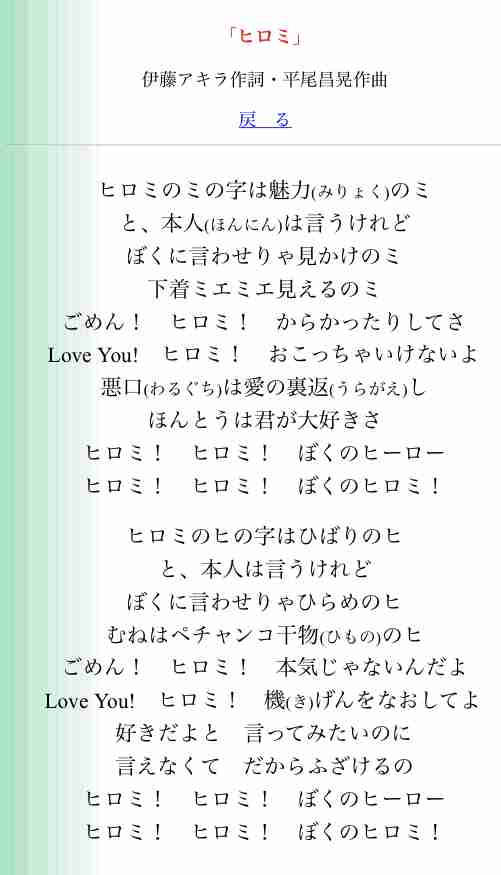 「ヒロミ」
伊藤アキラ作詞・平尾昌晃作曲
戻　る
ヒロミのミの字は魅力(みりょく)のミ
と、本人(ほんにん)は言うけれど
ぼくに言わせりゃ見かけのミ
下着ミエミエ見えるのミ
ごめん！　ヒロミ！　からかったりしてさ
Love You!　ヒロミ！　おこっちゃいけないよ
悪口(わるぐち)は愛の裏返(うらがえ)し
ほんとうは君が大好きさ
ヒロミ！　ヒロミ！　ぼくのヒーロー
ヒロミ！　ヒロミ！　ぼくのヒロミ！
ヒロミのヒの字はひばりのヒ
と、本人は言うけれど
ぼくに言わせりゃひらめのヒ
むねはペチャンコ干物(ひもの)のヒ
ごめん！　ヒロミ！　本気じゃないんだよ
Love You!　ヒロミ！　機(き)げんをなおしてよ
好きだよと　言ってみたいのに
言えなくて　だからふざけるの
ヒロミ！　ヒロミ！　ぼくのヒーロー
ヒロミ！　ヒロミ！　ぼくのヒロミ！